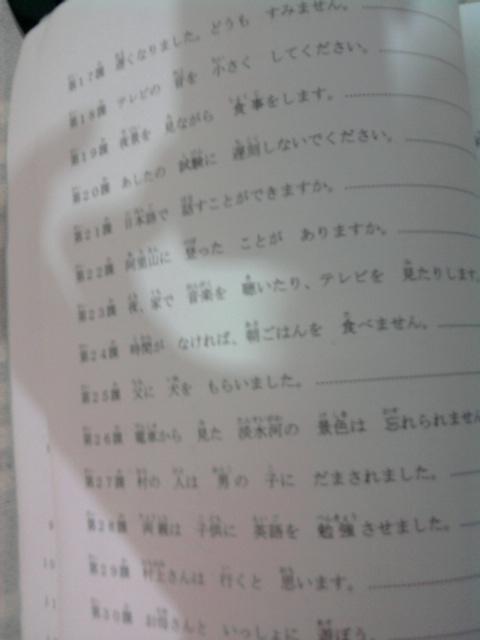 第17課 遅くなりました。どうも すみません。
第18課 テレビの 音を 小さく してください。
第19課 夜景を 見ながら 食事をします。
第20課 あしたの 試験に 遅刻しないでください。
第21課 日本語で 話すことができますか。
第22課 阿里山に 登った ことが ありますか。
第23課 夜、家で 音楽を 聴いたり、テレビを 見たりします。
第24課 時間が なければ、朝ごはんを 食べません。
第25課 父に 犬を もらいました。
第26課 電車から 見た 淡水河の 景色は 忘れられません
第27課 村の 人は 男の 子に だまされました。
第28課 両親は 子供に 英語を 勉強させました。
第29課 村上さんは 行くと 思います。
第30課 お母さんと いっしょに 遊ぼう
9
10
11